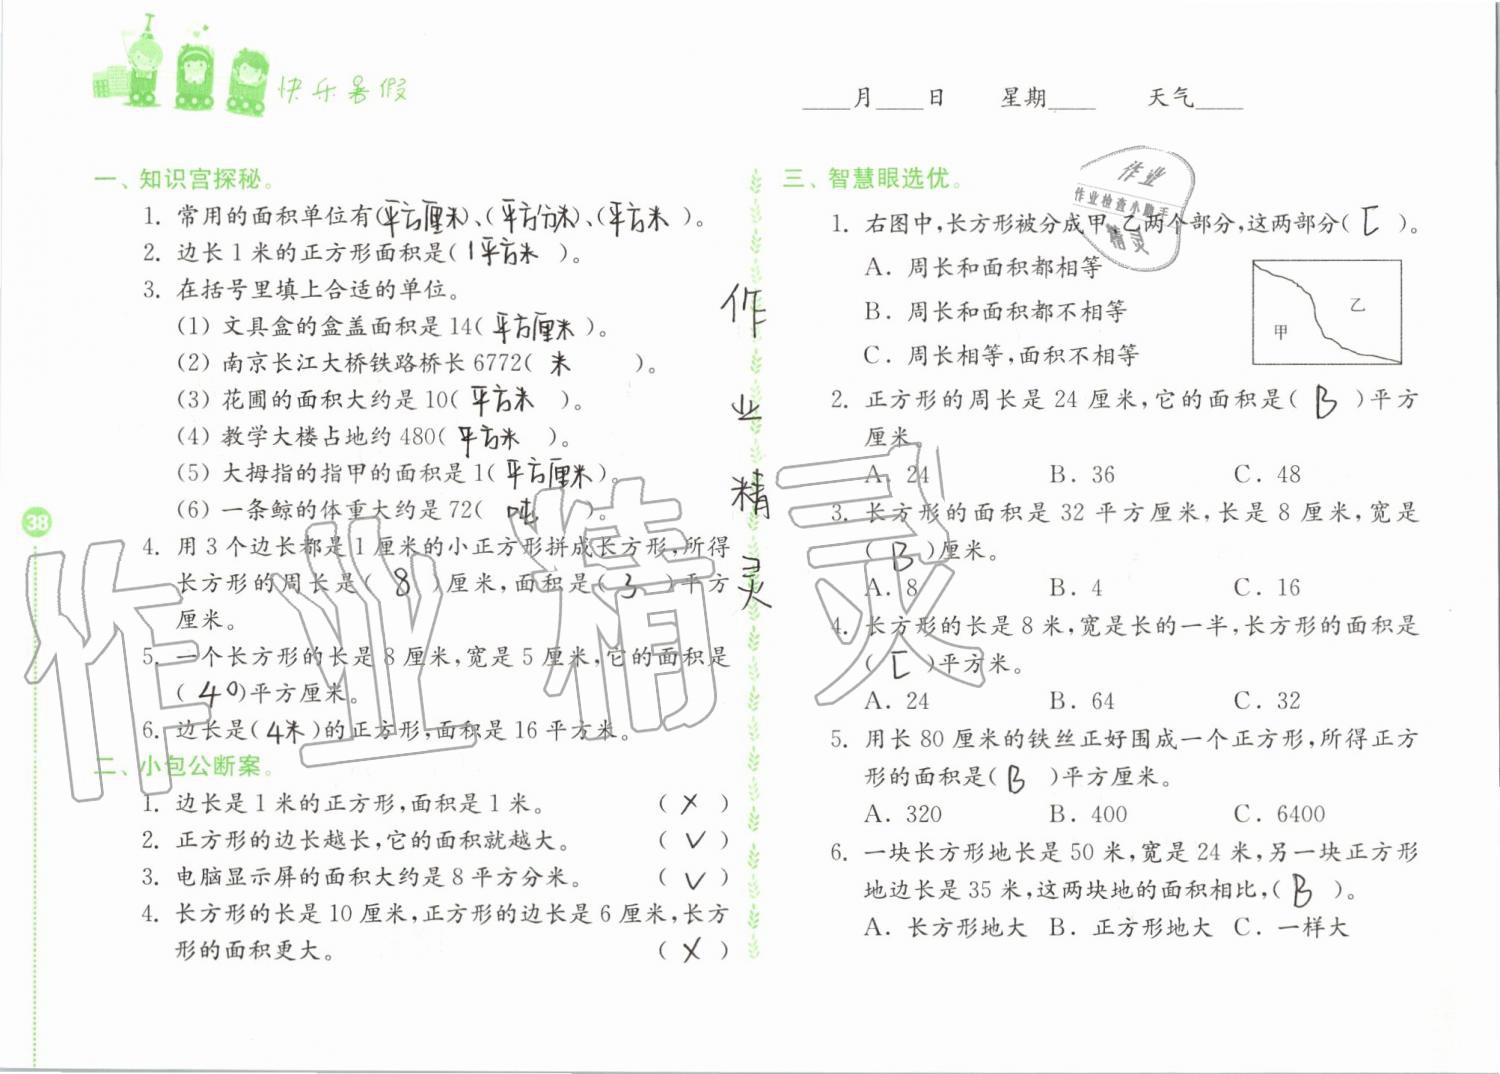 快乐暑假
____月____日 星期____ 天气____
一、知识宫探秘。
1. 常用的面积单位有(平方厘米)、(平方分米)、(平方米)。
2. 边长1米的正方形面积是(1平方米)。
3. 在括号里填上合适的单位。
(1) 文具盒的盒盖面积是14(平方厘米)。
(2) 南京长江大桥铁路桥长6772(米)。
(3) 花圃的面积大约是10(平方米)。
(4) 教学大楼占地约480(平方米)。
(5) 大拇指的指甲的面积是1(平方厘米)。
(6) 一条鲸的体重大约是72(吨)。
4. 用3个边长都是1厘米的小正方形拼成长方形,所得
长方形的周长是(8)厘米,面积是(3)平方
厘米。
5. 一个长方形的长是8厘米,宽是5厘米,它的面积是
(40)平方厘米。
6. 边长是(4米)的正方形,面积是16平方米。
二、小包公断案。
1. 边长是1米的正方形,面积是1米。 (×)
2. 正方形的边长越长,它的面积就越大。 (√)
3. 电脑显示屏的面积大约是8平方分米。 (√)
4. 长方形的长是10厘米,正方形的边长是6厘米,长方
形的面积更大。 (×)
38
作业精灵
作业精灵
三、智慧眼选优。
作业
作业检查小助手
精灵
1. 右图中,长方形被分成甲、乙两个部分,这两部分(C)。
A. 周长和面积都相等
B. 周长和面积都不相等
C. 周长相等,面积不相等
甲
乙
2. 正方形的周长是24厘米,它的面积是(B)平方
厘米。
A. 24 B. 36 C. 48
3. 长方形的面积是32平方厘米,长是8厘米,宽是
(B)厘米。
A. 8 B. 4 C. 16
4. 长方形的长是8米,宽是长的一半,长方形的面积是
(C)平方米。
A. 24 B. 64 C. 32
5. 用长80厘米的铁丝正好围成一个正方形,所得正方
形的面积是(B)平方厘米。
A. 320 B. 400 C. 6400
6. 一块长方形地长是50米,宽是24米,另一块正方形
地边长是35米,这两块地的面积相比,(B)。
A. 长方形地大 B. 正方形地大 C. 一样大